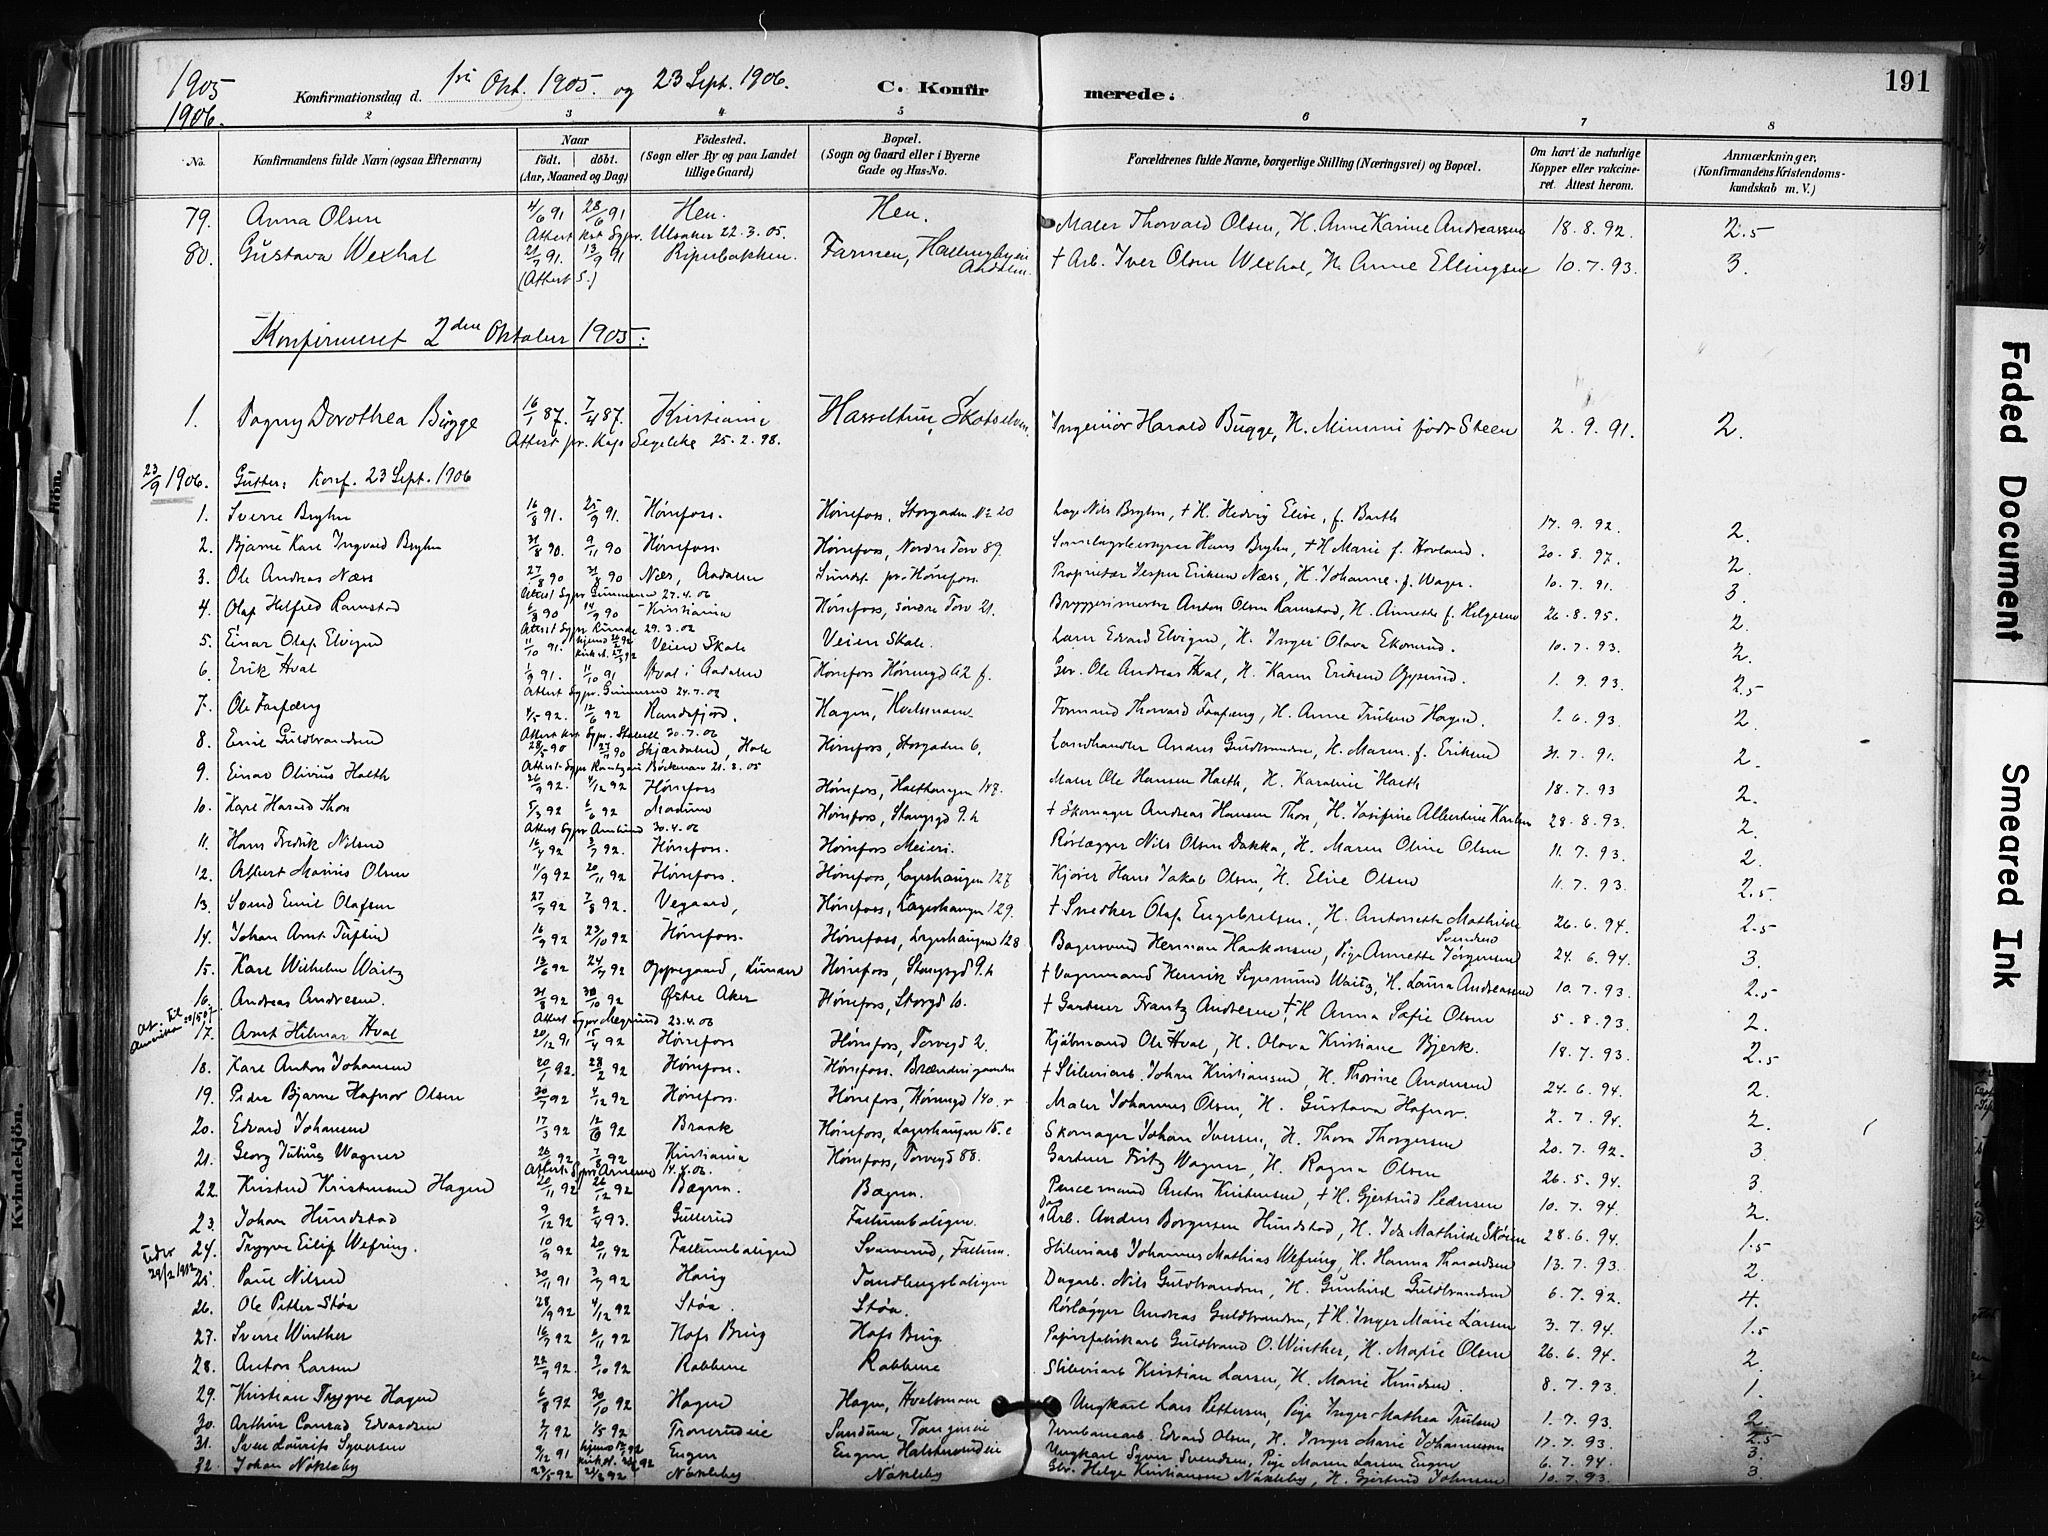 1905
1906.
Konfirmationsdag d. 1ste Okt. 1905. og 23 Sept. 1906.
C. Konfirmerede.
191
2 3 4 5 6 7 8
No.
Konfirmandens fulde Navn (ogsaa Efternavn)
Naar
födt. döbt.
(Aar, Maaned og Dag)
Födested.
(Sogn eller By og paa Landet tillige Gaard)
Bopæl.
(Sogn og Gaard eller i Byerne Gade og Hus-No.
Forældrenes fulde Navne, borgerlige Stilling (Næringsvei) og Bopæl.
Om havt de naturlige Kopper eller vakcineret. Attest herom.
Anmærkninger.
(Konfirmandens Kristendomskundskab m. V.)
79. Anna Olsen 4/6 91 28/6 91 Hen. Hen. Maler Thorvald Olsen, H. Anne Karine Andreassen 18.8.92. 2.5
Attest kst Sgpr. Ulsaker 22.3.05.
80. Gustava Wexhal 21/7 91. 13/9 91 Ripabakken. Farmen, † Arb. Iver Olsen Wexhal, H. Anne Ellingsen 10.7.93. 3.
(Attest S.)
Konfirmeret 2den Oktober 1905:
1. Dagny Dorothea Bugge 16/1 87. 7/4 87. Kristiania Hasseltun, Skotselven. Ingeniör Harald Bugge, H. Mimmi födt Steen 2.9.91. 2.
Attest pr. Kap. Segelcke 25.2.98.
23/9 1906. Gutter: Konf. 23 Sept. 1906
1. Sverre Bryhn 16/8 91. 25/9 91. Hönefoss. Hönefoss. Storgaden No 20 Nils Bryhn, † H. Hedvig Elise, f. Barth 17.9.92. 2.
2. Bjarne Kare Ingvard Bryhn 31/8 90. 9/11 90 Hönefoss. Hönefoss, Nordre Torv 89. Hans Bryhn, † H Marie f. Hovland. 30.8.97. 2.
3. Ole Andreas Næss 27/8 90 Næs, Aadalen Sundst. pr. Hönefoss. Proprietær Jesper Eriksen Næss, H. Johanne f. Wager. 10.7.91. 3.
Attest Sgpr Gunnersen 27.4.06
4. Olaf Helfred Ramstad 6/8 90 14/9 90 Kristiania Hönefoss, söndre Torv 21. Bryggerimester Anton Olsen Ramstad, H. Annette f. Helgesen 26.8.95. 2.
Attest Sgpr Lunde 29.3.06
5. Einar Olaf Elvigen 11/10 91. Veien Skole Veien Skole. Lærer Edvard Elvigen, H. Inger Olava Ekornrud. 10.7.93. 2.
6. Erik Hval 1/9 91. 11/10 91 Hval i Aadalen Hönefoss Höinngd 62 f. Gbr. Ole Andreas Hval, H. Karen Eriksen Opperud. 1.9.93. 2.5
Attest Sgpr. Gunnersen 24.7.06
7. Ole Faafæng 4/5 92. 12/6 92 Randsfjord. Hagen, Hvelsmoen Formand Thorvald Faafæng, H. Anne Trulsen Hagen. 1.6.93. 2.
Attest kst Sgpr. 30.7.06
8. Emil Guldbrandsen 28/5 90 27/7 90 Skjærdalen, Hole Hönefoss, Storgaden 6, Landhandler Anders Guldbrandsen, H. Maren f. Eriksen 31.7.91. 2.
Attest Sgpr Rantzau Böckman 21.8.05
9. Einar Olivius Haeth 26/9 92. 4/12 92 Hönefoss Hönefoss, Haethaugen 147. Maler Ole Hansen Haeth, H. Karoline Haeth 18.7.93 2.
10. Karl Harald Thon 5/3 92 6/6 92 Modum Hönefoss, Stangsgd 9.h † Skomager Andreas Hansen Thon, H. Josefine Albertine Karlsen 28.8.93. 2.
Attest Sgpr 30.4.06
11. Hans Fredrik Nilsen 16/4 92 3/7 92. Hönefoss. Hönefoss Meieri. Rörlægger Nils Olsen Dokka, H. Maren Oline Olsen 11.7.93. 2.
12. Albert Marius Olsen 11/9 92 20/11 92 Hönefoss. Hönefoss, Lagerhaugen 127 Kjörer Hans Jakob Olsen, H. Elise Olsen 11.7.93. 2.5
13. Svend Emil Olafsen 27/7 92 7/8 92. Vegaard, Hönefoss, Lagerhaugen 129. † Snedker Olaf Engebretsen, H. Antonette Mathilde Svendsen 26.6.94. 2.5
14. Johan Arnt Tufsin 16/9 92 23/10 92 Hönefoss. Hönefoss, Lagerhaugen 128 Bagersvend Herman Haakonsen, Pige Annette Jörgensen 24.6.94. 3.
15. Karl Wilhelm Waitz 13/6 92 24/7 92 Oppegaard, Lunder Hönefoss, Stangsgd 9.h † Vognmand Henrik Sigesmund Waitz, H. Laura Andreassen 10.7.93. 2.5
16. Andreas Andresen. 21/8 92 30/10 92 Östre Aker Hönefoss, Storgd 10. † Gartner Frantz Andresen, † H Anna Sofie Olsen 5.8.93. 2.
Attest Sgpr 23.4.06
17. Arnt Hilmar Hval 20/12 91 15/4 92 Hönefoss Hönefoss, Torvegd 2. Kjöbmand Ole Hval, H. Olava Kristiane Bjerk. 18.7.93. 2.5
18. Karl Anton Johansen 20/1 92. 28/2 92 Hönefoss. Hönefoss. Brænderigaarden † Sliberiarb. Johan Kristiansen, H. Thorine Andersen 24.6.94. 2.
19. Peder Bjarne Hafnor Olsen 30/7 92 4/12 92 Hönefoss. Hönefoss, Höinngd 140. Maler Johannes Olsen, H. Gustava Hafnor. 2.7.94. 2.
20. Edvard Johansen 17/3 92 92 Braak Hönefoss, Lagerhaugen 15.c Skomager Johan Iversen, H. Thora Thorgersen 20.7.92. 3.
21. Georg Julius Wagner 26/5 92 7/8 92 Kristiania Hönefoss, Torvegd 88. Gartner Fritz Wagner, H. Ragna Olsen 26.5.94. 3.
Attest Sgpr Arnesen 14.4.06.
22. Kristen Kristensen Hagen 20/11 92 26/12 92 Bægna. Bægna. Anton Kristensen, † H. Gjertrud Pedersen 10.7.94. 2.
23. Johan Hundstad 9/12 92 2/4 93. Gullerud Follumboligen. Arb. Anders Borgersen Hundstad, H. Ida Mathilde Skören 28.6.94. 1.5
24. Trygve Eilif Wefring. 10/9 92 20/11 92 Follumboligen Svarverud, Follum. Sliberiarb Johannes Mathias Wefring, H. Hanna Thoraldsen 13.7.93. 2.
29/2 1912
25. Paul Nilsen 30/11 91 3/7 92 Haug Tandbergsboligen Dagarb. Nils Guldbrandsen, H. Gunhild Guldbrandsen 6.7.92. 4.
26. Ole Petter Stöa 28/9 92 4/12 92 Stöa. Stöa. Rörlægger Andreas Guldbrandsen, † H. Inger Marie Larsen 3.7.94. 1.5
27. Sverre Winther 16/7 92 6/11 92 Hofs Brug Hofs Brug Papirfabrikarb Guldbrand O. Winther, H. Mafie Olsen 26.6.94. 2.
28. Anton Larsen 22/7 92. 9/10 92 Rabbene Rabbene Sliberiarb Kristian Larsen, H. Marie Knudsen. 8.7.93. 1.
29. Kristian Trygve Hagen 6/8 92 30/10 92 Hagen Hagen, Hvelsmoen Ungkarl Lars Pettersen, Pige Inger Mathea Trulsen 1.7.93. 2.
30. Arthur Conrad Edvardsen 2/1 92 1/5 92 Tronrudeie Edvard Olsen, H. Inger Marie Johannessen 17.7.93. 2.5
31. Sven Laurits Syversen 9/12 91 Enger Enger Halsteinrudeie Ungkarl Syver Svendsen, Pige Maren Larsen Enger 6.7.94. 3.
32. Johan Nökleby 23/5 92 92 Nökleby Nökleby Gbr. Helge Kristiansen Nökleby, H. Gjertrud Johnsen 10.7.93. 3
Kvindekjön.
Faded Document
Smeared Ink